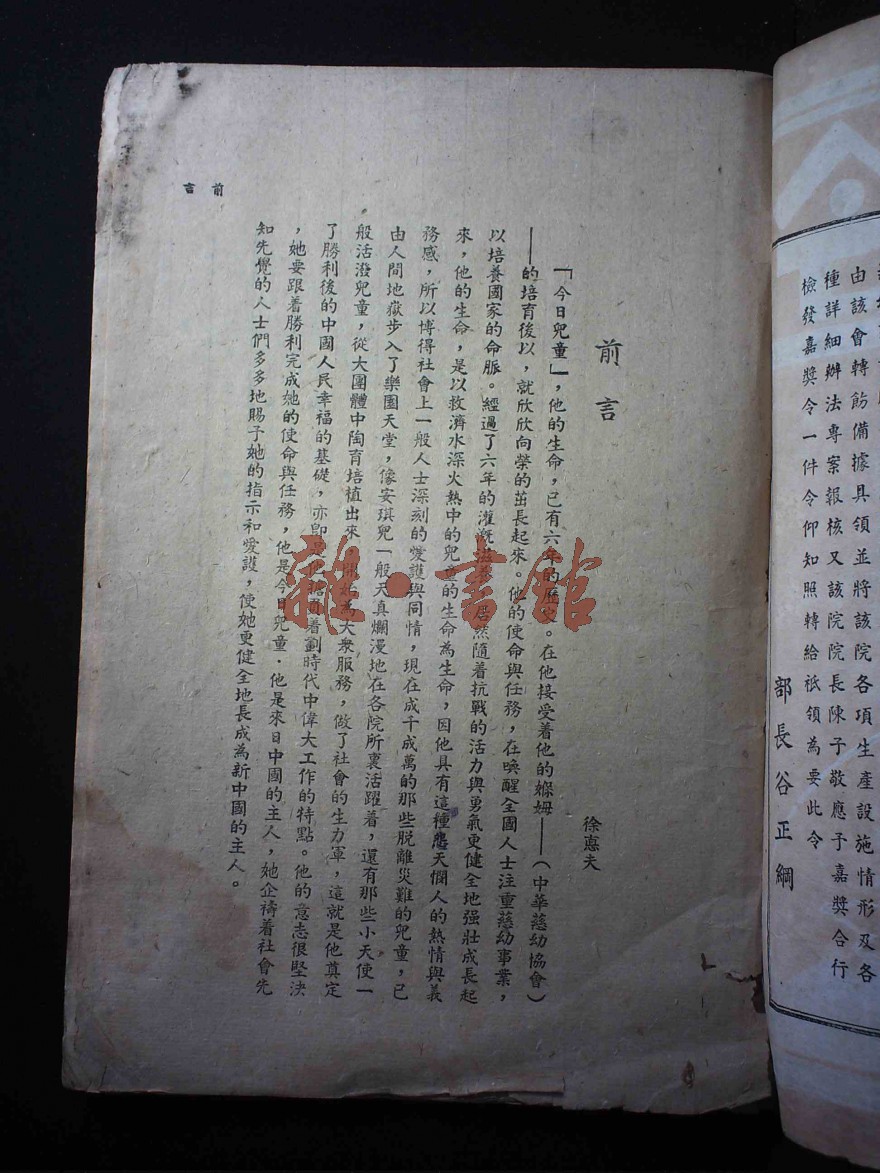 由該會轉飭備據具領並將該院各項生產設施情形及各
種詳細辦法專案報核又該院院長陳子敬應予嘉獎合行
檢發嘉獎令一件令仰知照轉給祇領為要此令
部長谷正綱
前言
徐惪夫
「「今日兒童」,他的生命,已有六年的歷史。在他接受着他的媬姆——(中華慈幼協會)
——的培育後以,就欣欣向榮的茁長起來。他的使命與任務,在喚醒全國人士注重慈幼事業,
以培養國家的命脈。經過了六年的灌溉滋養,居然隨着抗戰的活力與勇氣更健全地强壯成長起
來,他的生命,是以救濟水深火熱中的兒童的生命為生命,因他具有這種悲天憫人的熱情與義
務感,所以博得社會上一般人士深刻的愛護與同情,現在成千成萬的那些脱離災難的兒童,已
由人間地獄步入了樂園天堂,像安琪兒「般天真爛漫地在各院所裏活躍着,還有那些小天使一
般活潑兒童,從大團體中陶育培植出來,開始為大衆服務,做了社會的生力軍,這就是他奠定
了勝利後的中國人民幸福的基礎,亦即是他擔負着劃時代中偉大工作的特點。他的意志很堅决
,她要跟着勝利完成她的使命與任務,他是今日兒童.他是來日中國的主人,她企禱着社會先
知先覺的人士們多多地賜予她的指示和愛護,使她更健全地長成為新中國的主人。
前言
雜·書館